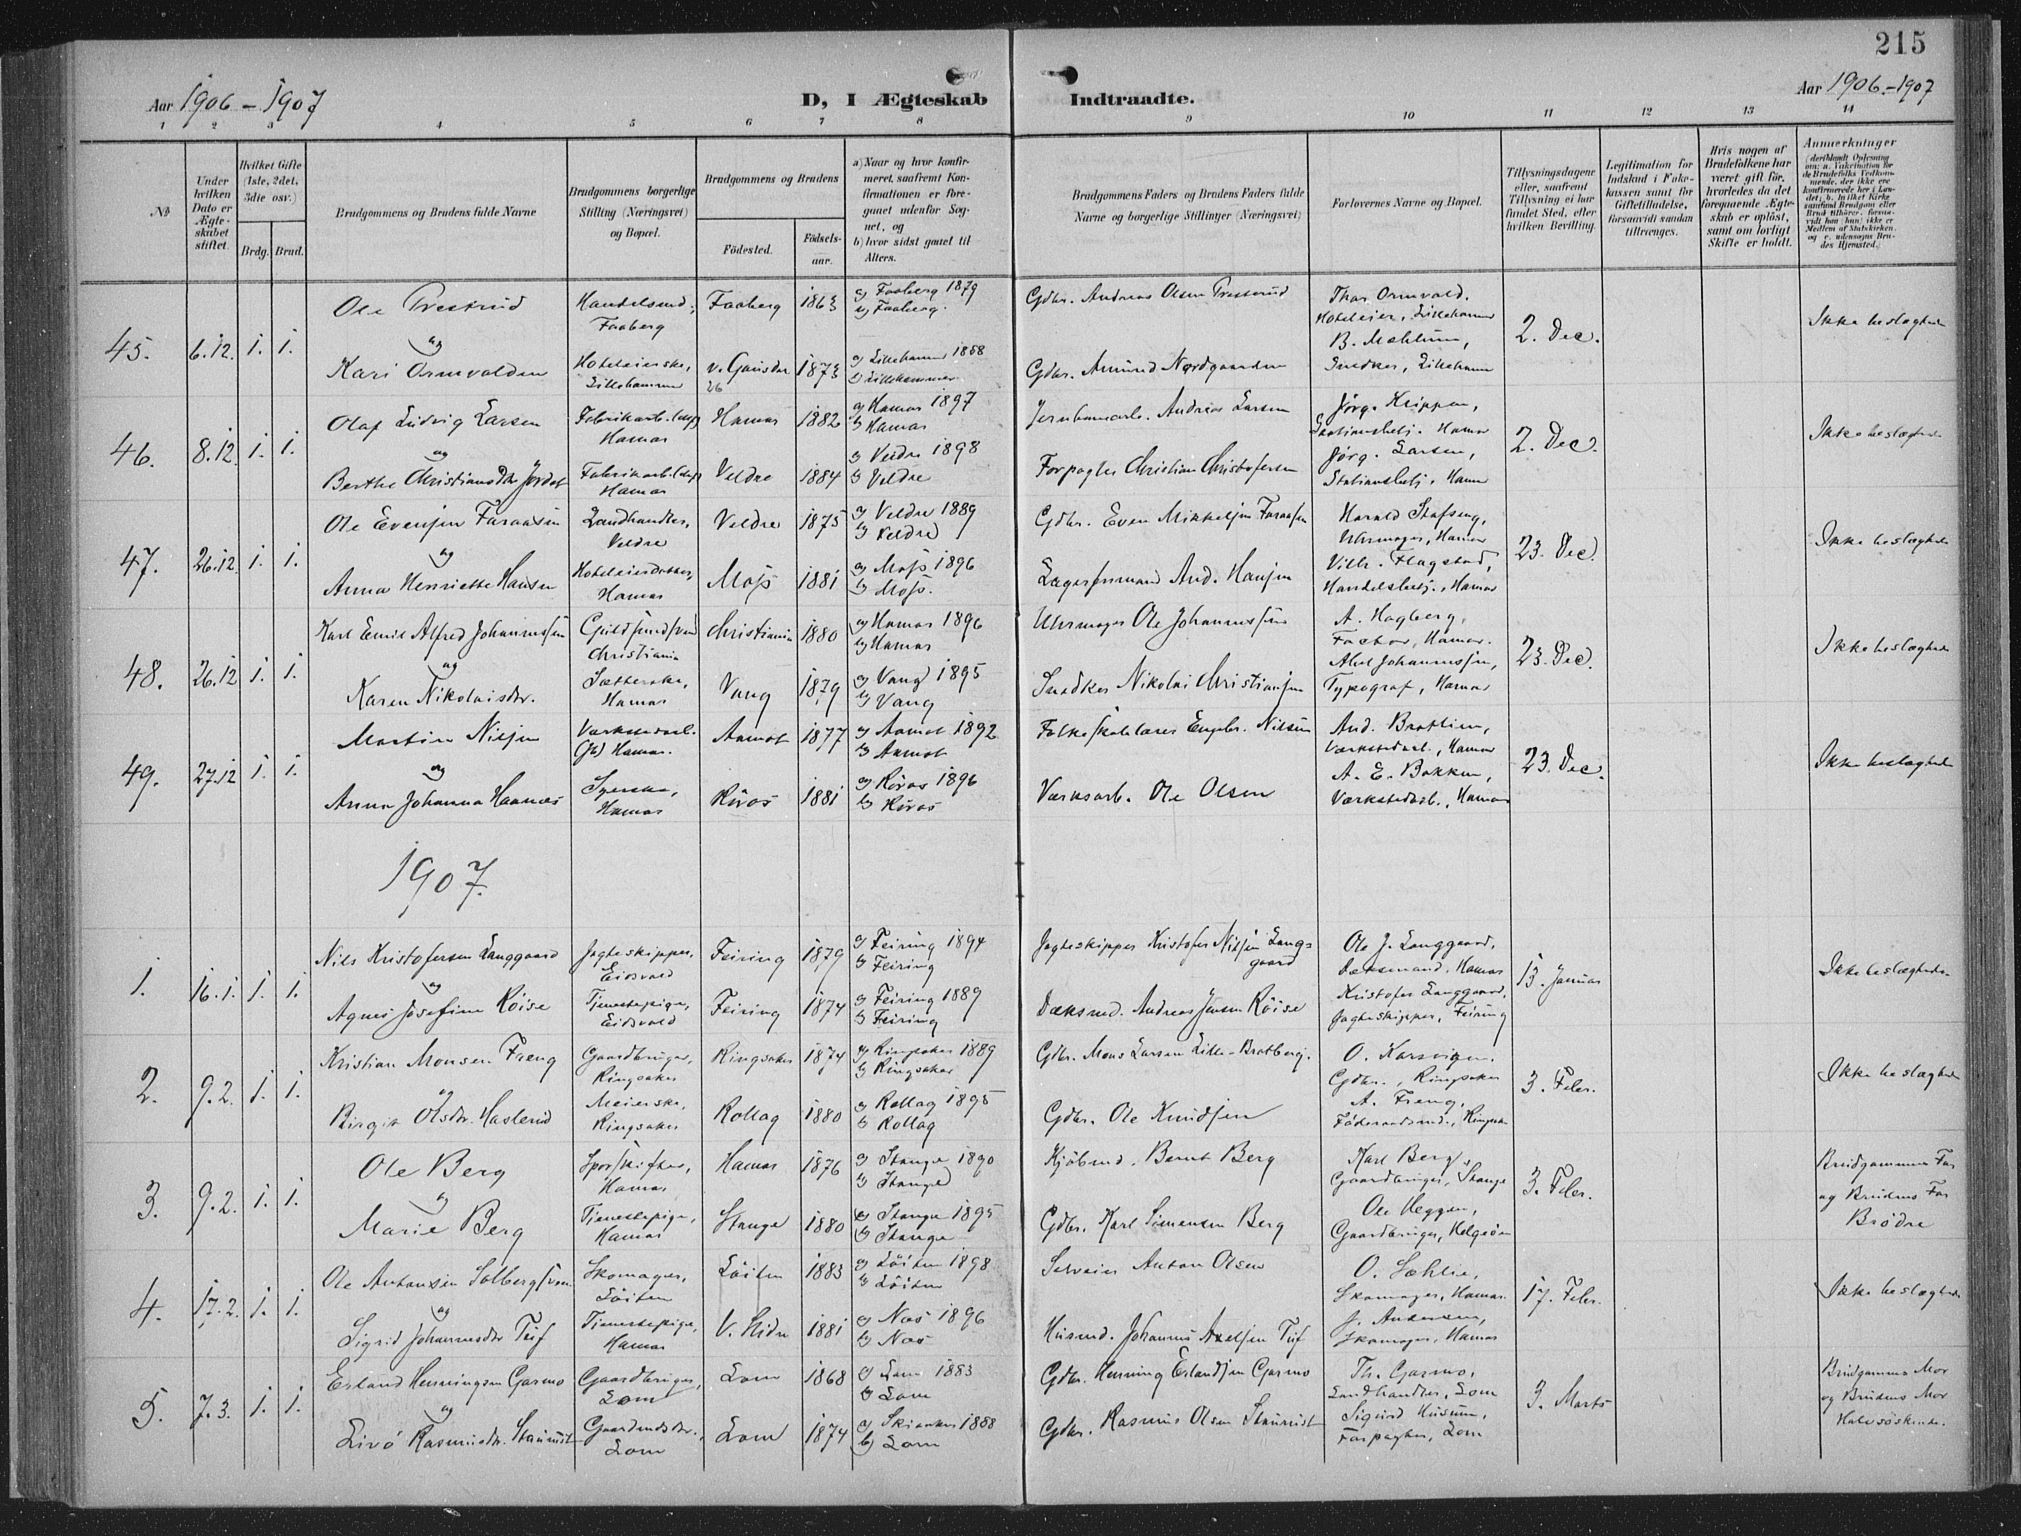 215
Aar 1906-1907
D, I Ægteskab
Indtraadte.
Aar 1906.-1907
1 2 3 4 5 6 7 8 9 10 11 12 13 14
No
Under hvilken Dato er Ægteskabet stiftet.
Hvilket Gifte (1ste, 2det, 3die osv.)
Brdg. Brud.
Brudgommens og Brudens fulde Navne
Brudgommens borgerlige Stilling (Næringsvei) og Bopæl.
Brudgommens og Brudens
Födested.
Födselsaar.
a) Naar og hvor konfirmeret, saafremt Konfirmationen er foregaaet udenfor Sognet, og
b) hvor sidst gaaet til Alters.
Brudgommens Faders og Brudens Faders fulde Navne og borgerlige Stillinger (Næringsvei)
Forlovernes Navne og Bopæl.
Tillysningsdagene eller, saafremt Tillysning ei har fundet Sted, efter hvilken Bevilling.
Legitimation for Indskud i Fakekassen samt for Giftetilladelse, forsaavidt saadan tiltrænges.
Hvis nogen af Brudefolkene har været gift før, hvorledes da det foregaaende Ægteskab er oplöst, samt om lovligt Skifte er holdt.
Anmerkninger
45. 6.12. 1. 1.
Ole Prestrud Handelsmd., Faaberg Faaberg 1863 a) Faaberg 1879 b) Faaberg.
Gdbr. Andreas Olsen Presterud
Thor Ormvold, Hoteleier, Lillehammer
B. Mæhlum, Snedker, Lillehamm
2. Dec.
Ikke beslægtede
og
Kari Ormvolden Hoteleierske, Lillehammer v. Gausdal 1873 a) Lillehammer 1888 b) Lillehammer
Gdbr. Amund Nordgaarden
46. 8.12. 1. 1.
Olaf Ludvig Larsen Fabrikarb. Hamar Hamar 1882 a) Hamar 1897 b) Hamar
Jernbanearb. Andreas Larsen
Jørg. Krippen, Stationsbetj. Hamar
Jørg. Larsen, Stationsbetj. Hamar
2. Dec.
Ikke beslægtede
og
Berthe Christiansdtr Jordet Fabrikarb. Hamar Veldre 1884 a) Veldre 1898 b) Veldre
Forpagter Christian Christofersen
47. 26.12. 1. 1.
Ole Evensen Faraasen Landhandler, Veldre Veldre 1875 a) Veldre 1889 b) Veldre
Gdbr. Even Mikkelsen Faraasen
Harald Stafseng, Uhrmager, Hamar
Vilh. Flagstad, Handelsbetj., Hamar
23. Dec.
Ikke beslægtede
og
Anna Henriette Hansen Hoteleierdatter, Hamar Moss 1881 a) Moss 1896 b) Moss.
Lagerformand And. Hansen
48. 26.12 1. 1.
Karl Emil Alfred Johannessen Guldsmedsvend Christiania Christiania 1880 a) Hamar 1896 b) Hamar
Uhrmager Ole Johannessen
A. Hagberg, Factor, Hamar.
Abel Johannessen, Typograf, Hamar
23. Dec.
Ikke beslægtede
og
Karen Nikolaisdr. Sætterske, Hamar Vang 1879 a) Vang 1895 b) Vang
Snedker Nikolai Christiansen
49. 27.12 1. 1.
Martin Nilsen Værkstedarb. Hamar. Aamot 1877 a) Aamot 1892 b) Aamot
Folkeskolelærer Engebr. Nilsen
And. Brattlien, Værkstedarb., Hamar
A. E. Bakken, Værkstedarb., Hamar
23. Dec.
Ikke beslægtede
og
Anna Johanna Haanæs Syerske, Hamar Röros 1881 a) Röros 1896 b) Röros
Værksarb. Ole Olsen
1907.
1. 16.1. 1. 1.
Nils Kristofersen Langgaard Jagteskipper, Eidsvold Feiring 1879 a) Feiring 1894 b) Feiring
Jagteskipper Kristofer Nilsen Langgaard
Ole J. Langgaard, Dæksmand. Hamar
Kristofer Langgaard, Jagteskipper, Feiring
13. Januar
Ikke beslægtede
og
Agnes Josefine Röise Tjenestepige, Eidsvold Feiring 1874 a) Feiring 1889 b) Feiring
Dæksmd. Andreas Jensen Röise
2. 9.2. 1. 1.
Kristian Monsen Freng Gaardbruger, Ringsaker Ringsaker 1874 a) Ringsaker 1889 b) Ringsaker
Gdbr. Mons Larsen Lille-Bratberg.
O. Karsvigen. Gdbr., Ringsaker
A. Freng, Föderaadsmd., Ringsaker
3. Febr.
Ikke beslægtede
og
Birgit Olsdr. Haslerud Meierske, Ringsaker Rollag 1880 a) Rollag 1895 b) Rollag
Gdbr. Ole Knudsen
3. 9.2. 1. 1.
Ole Berg Sporskifter, Hamar Hamar 1876 a) Stange 1890 b) Stange
Kjöbmd. Bernt Berg
Karl Berg, Gaardbruger, Stange
Ole Heggen, Gaardbruger, Helgöen
3. Febr.
Brudgommens Far og Brudens Far Brødre
og
Marie Berg Tjenestepige, Hamar Stange 1880 a) Stange 1895 b) Stange
Gdbr. Karl Simensen Berg
4. 17.2. 1. 1.
Ole Antonsen Solbergsveen Skomager, Löiten Löiten 1883 a) Löiten 1898 b) Löiten
Selveier Anton Olsen
O. Sæhlie, Skomager, Hamar.
J. Andersen, Skomager, Hamar
17. Febr.
Ikke beslægtede
og
Sigrid Johannesdr Tuf Tjenestepige, Hamar V. Slidre 1881 a) Nas 1896 b) Nas
Husmd. Johannes Axelsen Tuf
5. 7.3. 1. 1.
Erland Henningsen Garmo Gaardbruger, Lom Lom 1868 a) Lom 1883 b) Lom
Gdbr. Henning Erlandsen Garmo
Th. Garmo, Landhandler, Lom
Sigurd Husum, Forpagter, Lom
3. Marts
Brudgommens Mor og Brudens Mor Halvsöskende.
og
Livö Rasmusdr. Staurust Gaardmdsdr., Lom Lom 1874 a) Skiaaker 1888 b) Lom
Gdbr. Rasmus Olsen Staurust